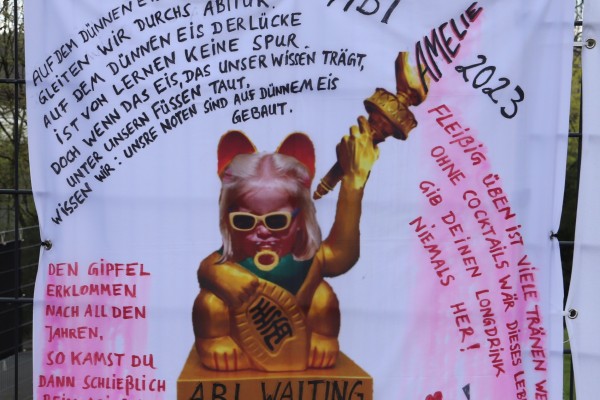 ABI
AUF DEM DÜNNEN EIS
GLEITEN WIR DURCHS ABITUR.
AUF DEM DÜNNEN EIS DER LÜCKE
IST VON LERNEN KEINE SPUR.
DOCH WENN DAS EIS, DAS UNSER WISSEN TRÄGT,
UNTER UNSERN FÜSSEN TAUT,
WISSEN WIR: UNSRE NOTEN SIND AUF DÜNNEM EIS
GEBAUT.
AMELIE
2023
FLEIßIG ÜBEN IST VIELE TRÄNEN WE
OHNE COCKTAILS WÄR DIESES LEB
GIB DEINEN LONGDRINK
NIEMALS HER!
DEN GIPFEL
ERKLOMMEN
NACH ALL DEN
JAHREN,
SO KAMST DU
DANN SCHLIEßLICH
ABI WAITING